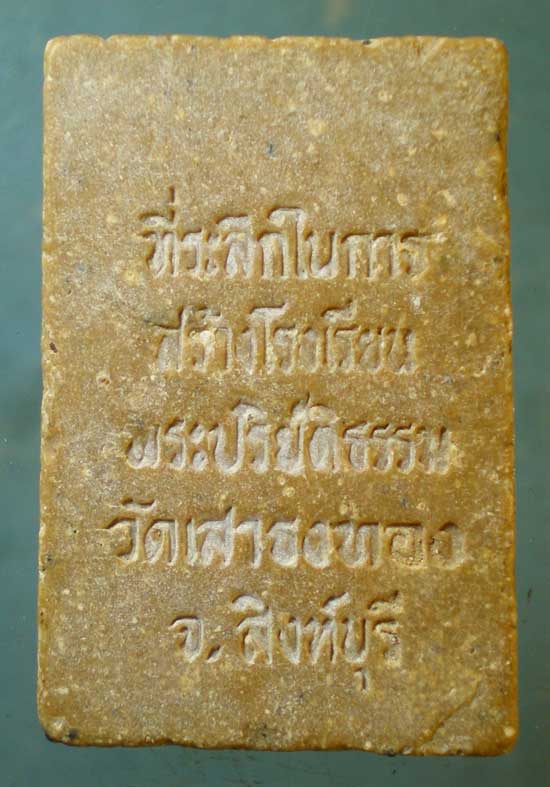 ที่ระลึกในการ
สร้างโรงเรียน
พระปริยัติธรรม
วัดเสาธงทอง
จ. สิงห์บุรี